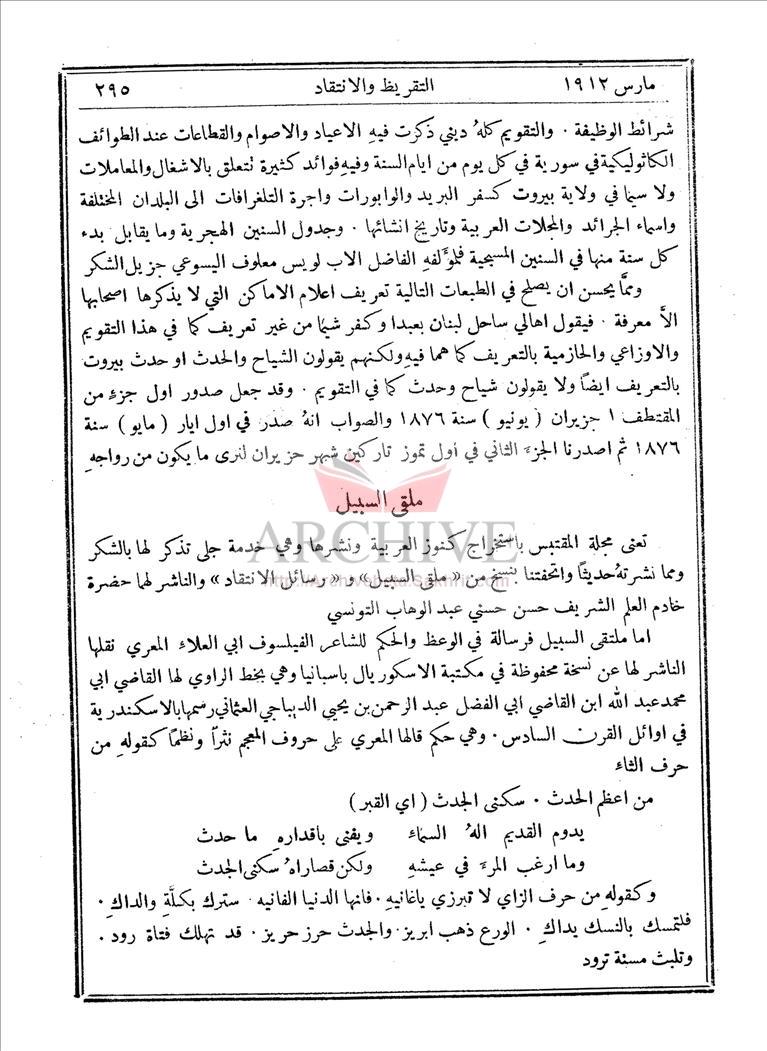 مارس ١٩١٢ التقريظ والانتقاد ٢٩٥
شرائط الوظيفة . والتقويم كلهُ ديني ذكرت فيهِ الاعياد والاصوام والقطاعات عند الطوائف
الكاثوليكية في سورية في كل يوم من ايام السنة وفيهِ فوائد كثيرة نتعلق بالاشغال والمعاملات
ولا سيما في ولاية بيروت كسفر البريد والوابورات واجرة التلغرافات الى البلدان المختلفة
واسماء الجرائد والمجلات العربية وتاريخ انشائها . وجدول السنين الهجرية وما يقابل بدء
كل سنة منها في السنين المسيحية فلمؤَلفهِ الفاضل الاب لويس معلوف اليسوعي جزيل الشكر
وممَّا يحسن ان يصلح في الطبعات التالية تعريف اعلام الاماكن التي لا يذكرها اصحابها
الاَّ معرفة . فيقول اهالي ساحل لبنان بعبدا وكفر شيما من غير تعريف كما في هذا التقويم
والاوزاعي والحازمية بالتعريف كما هما فيهِ ولكنهم يقولون الشياح والحدث او حدث بيروت
بالتعريف ايضاً ولا يقولون شياح وحدث كما في التقويم . وقد جعل صدور اول جزءٍ من
المقتطف ١ حزيران ( يونيو ) سنة ١٨٧٦ والصواب انهُ صدر في اول ايار ( مايو ) سنة
١٨٧٦ ثم اصدرنا الجزء الثاني في أول تموز تاركين شهر حزيران لنرى ما يكون من رواجهِ
ملقى السبيل
ARCHIVE
تعنى مجلة المقتبس باستخراج كنوز العربية ونشرها وهي خدمة جلى تذكر لها بالشكر
ومما نشرتهُ حديثاً واتحفتنا بنسخ من « ملقى السبيل » و « رسائل الانتقاد » والناشر لهما حضرة
خادم العلم الشريف حسن حسني عبد الوهاب التونسي
اما ملتقى السبيل فرسالة في الوعظ والحكم للشاعر الفيلسوف ابي العلاء المعري نقلها
الناشر لها عن نسخة محفوظة في مكتبة الاسكوريال باسبانيا وهي بخط الراوي لها القاضي ابي
محمد عبد الله ابن القاضي ابي الفضل عبد الرحمن بن يحيى الديباجي العثماني رسمها بالاسكندرية
في اوائل القرن السادس . وهي حكم قالها المعري على حروف المعجم نثراً ونظماً كقولهِ من
حرف الثاء
من اعظم الحدث . سكنى الجدث ( اي القبر )
يدوم القديم الهُ السماء ويفنى باقدارهِ ما حدث
وما ارغب المرءَ في عيشهِ ولكن قصاراهُ سكنى الجدث
وكقولهِ من حرف الزاي لا تبرزي ياغانيه . فانها الدنيا الفانيه . سترك بكلَّةٍ والداكِ .
فلتمسك بالنسك يداكِ . الورع ذهب ابريز . والجدث حرز حريز . قد تهلك فتاة رود .
وتلبث مسنة ترود